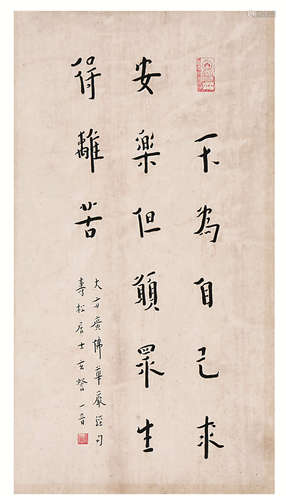 不為自己求
安樂但願眾生
得離苦
大方廣佛華嚴經句
壽松居士 一音